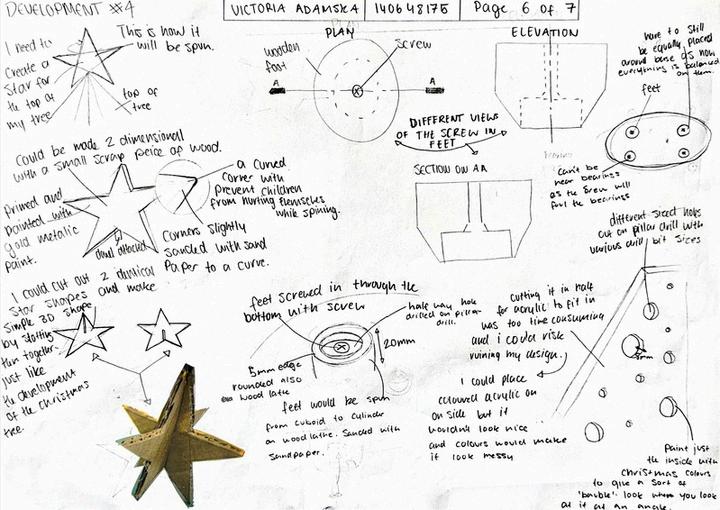 DEVELOPMENT #4
VICTORIA ADAMSKA
14064817S
Page 6 of 7
I need to
create a
star for
the top of
my tree
This is how it
will be spun.
top of
tree
PLAN
wooden
foot
screw
A
A
ELEVATION
have to still
be equally placed
around base as now
everything is balanced
on them.
feet
DIFFERENT VIEWS
OF THE SCREW IN
FEET
SECTION ON AA
can't be
near bearings
as the screw will
foul the bearings
Could be made 2 dimensional
with a small scrap peice of wood.
a curved
corner with
prevent children
from hurting themselves
while spining.
primed and
painted with
gold metalic
paint.
dowel attached
Corners slightly
sanded with sand
paper to a curve.
different sized holes
cut on pillar drill with
various drill bit sizes
I could cut out 2 identical
star shapes and make
simple 3D shape
by slotting
them together
just like
the development
of the christmas
tree.
feet screwed in through the
bottom with screw
half way hole
drilled on pillar
drill.
20mm
5mm edge
rounded also
on wood lathe
feet would be spun
from cuboid to cylinder
on wood lathe. Sanded with
sandpaper.
cutting it in half
for acrylic to fit in
was too time consuming
and i could risk
ruining my design.
I could place
coloured acrylic on
on side but it
wouldn't look nice
and colours would make
it look messy
5mm
Paint just
the inside with
christmas colours
to give a sort of
'bauble' look when you look
at it at an angle.